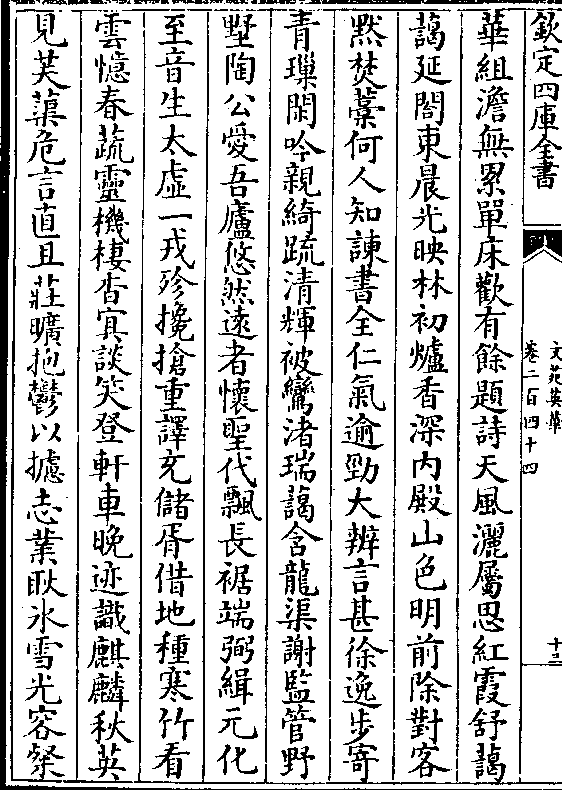 欽定四庫全書
文苑英華
卷二百四十四
十三
華組澹無累單床歡有餘題詩天風灑屬思紅霞舒藹
藹延閣東晨光映林初爐香深内殿山色明前除對客
默焚藁何人知諫書全仁氣逾勁大辨言甚徐逸步寄
青璅閑吟親綺疏清輝被鸞渚瑞藹含龍渠謝監管野
墅陶公愛吾廬悠然遠者懷聖代飄長裾端弼緝元化
至音生太虛一戎殄攙搶重譯充儲胥借地種寒竹看
雲憶春蔬靈機棲杳冥談笑登軒車晚迹識麒麟秋英
見芙蕖危言直且莊曠抱鬱以攄志業耿冰雪光容粲